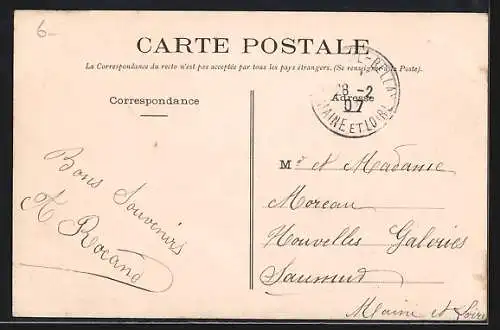 6-
CARTE POSTALE
La Correspondance du recto n'est pas acceptée par tous les pays étrangers. (Se renseigner à la Poste).
Correspondance
Adresse
28 -2
07
MAINE ET LOIRE
Bons Souvenirs
Mr et Madame
Moreau
Nouvelles Galeries
Saumur
Maine et Loire